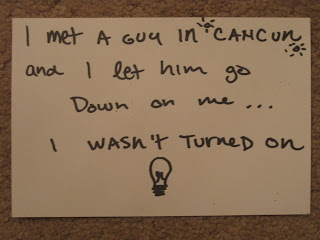 I MET A GUY IN CANCUN
and I let him go
DOWN ON ME ...
I WASN'T TURNED ON